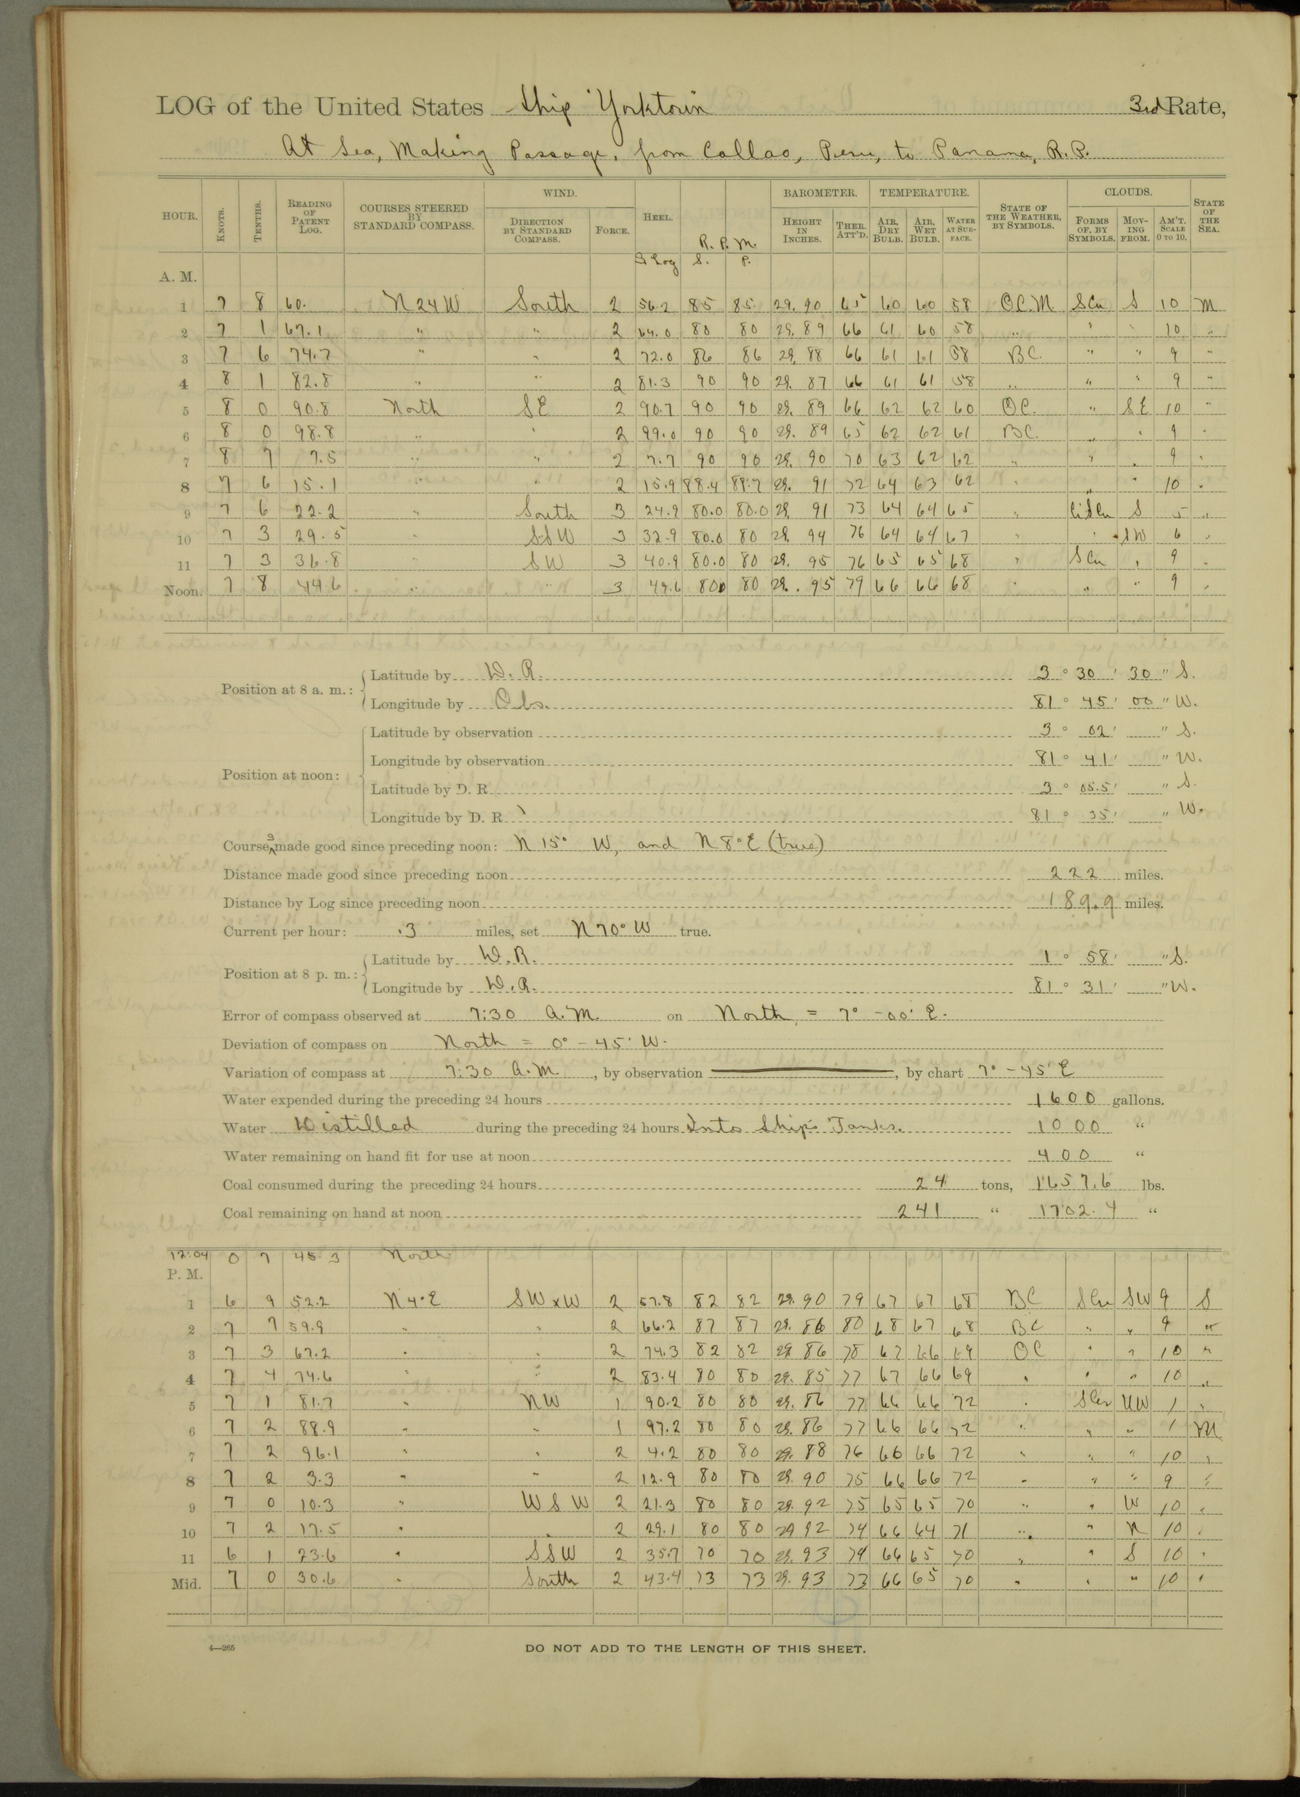 LOG of the United States Ship "Yorktown" 3rd Rate,
At Sea, Making Passage, from Callao, Peru, to Panama, R.P.
HOUR. KNOTS. TENTHS. READING OF PATENT LOG. COURSES STEERED BY STANDARD COMPASS. WIND. DIRECTION BY STANDARD COMPASS. FORCE. HEEL. R.P.M. BAROMETER. HEIGHT IN INCHES. THER. ATT'D. TEMPERATURE. AIR, DRY BULB. AIR, WET BULB. WATER AT SURFACE. STATE OF THE WEATHER, BY SYMBOLS. CLOUDS. FORMS OF, BY SYMBOLS. MOVING FROM. AM'T. SCALE 0 TO 10. STATE OF THE SEA.
S Log S. P.
A. M.
1 7 8 60. N24W South 2 56.2 85 85 29.90 65 60 60 58 O.C.M SCu S 10 M
2 7 1 67.1 " " 2 64.0 80 80 29.89 66 61 60 58 " " " 10 "
3 7 6 74.7 " " 2 72.0 86 86 29.88 66 61 61 58 BC. " " 9 "
4 8 1 82.8 " " 2 81.3 90 90 29.87 66 61 61 58 " " " 9 "
5 8 0 90.8 North SE 2 90.7 90 90 29.89 66 62 62 60 OC. " SE 10 "
6 8 0 98.8 " " 2 99.0 90 90 29.89 65 62 62 61 BC. " " 9 "
7 8 7 7.5 " " 2 7.7 90 90 29.90 70 63 62 62 " " " 9 "
8 7 6 15.1 " " 2 15.9 88.4 88.7 29.91 72 64 63 62 " " " 10 "
9 7 6 22.2 " South 3 24.9 80.0 80.0 29.91 73 64 64 65 " S 5 "
10 7 3 29.5 " SSW 3 32.9 80.0 80 29.94 76 64 64 67 " " SW 6 "
11 7 3 36.8 " SW 3 40.9 80.0 80 29.95 76 65 65 68 " SCu " 9 "
Noon. 7 8 44.6 " " 3 49.6 80.0 80 29.95 79 66 66 68 " " " 9 "
Position at 8 a. m.: Latitude by D. R. 3 ° 30 ' 30 " S.
Longitude by Obs. 81 ° 45 ' 00 " W.
Position at noon: Latitude by observation 3 ° 02 ' " S.
Longitude by observation 81 ° 41 ' " W.
Latitude by D. R. 3 ° 05.5 ' " S.
Longitude by D. R. 81 ° 35 ' " W.
Courses made good since preceding noon: N 15° W, and N 8° E (true)
Distance made good since preceding noon 222 miles.
Distance by Log since preceding noon 189.9 miles.
Current per hour: .3 miles, set N 70° W true.
Position at 8 p. m.: Latitude by D.R. 1 ° 58 ' " S.
Longitude by D.R. 81 ° 31 ' " W.
Error of compass observed at 7:30 A.M. on North = 7° -00' E.
Deviation of compass on North = 0° - 45' W.
Variation of compass at 7:30 A.M., by observation, by chart 7° - 45' E
Water expended during the preceding 24 hours 1600 gallons.
Water Distilled during the preceding 24 hours Into Ship's Tanks. 1000 "
Water remaining on hand fit for use at noon 400 "
Coal consumed during the preceding 24 hours 24 tons, 1657.6 lbs.
Coal remaining on hand at noon 241 " 1702.4 "
12:04 0 7 45.3 North
P. M.
1 6 9 52.2 N4°E SWxW 2 57.8 82 82 29.90 79 67 67 68 BC SCu SW 9 S
2 7 7 59.9 " " 2 66.2 87 87 29.86 80 68 67 68 BC " " 9 "
3 7 3 67.2 " " 2 74.3 82 82 29.86 78 67 66 69 OC " " 10 "
4 7 4 74.6 " " 2 83.4 80 80 29.85 77 67 66 69 " " " 10 "
5 7 1 81.7 " NW 1 90.2 80 80 29.86 77 66 66 72 " SCu 1 "
6 7 2 88.9 " " 1 97.2 80 80 29.86 77 66 66 72 " " " 1 M
7 7 2 96.1 " " 2 4.2 80 80 29.88 76 66 66 72 " " " 10 "
8 7 2 3.3 " " 2 12.9 80 80 29.90 75 66 66 72 " " " 9 "
9 7 0 10.3 " WSW 2 21.3 80 80 29.92 75 65 65 70 " " W 10 "
10 7 2 17.5 " " 2 29.1 80 80 29.92 74 66 64 71 " " N 10 "
11 6 1 23.6 " SSW 2 35.7 70 70 29.93 74 66 65 70 " " S 10 "
Mid. 7 0 30.6 " South 2 43.4 73 73 29.93 73 66 65 70 " " " 10 "
4—265 DO NOT ADD TO THE LENGTH OF THIS SHEET.